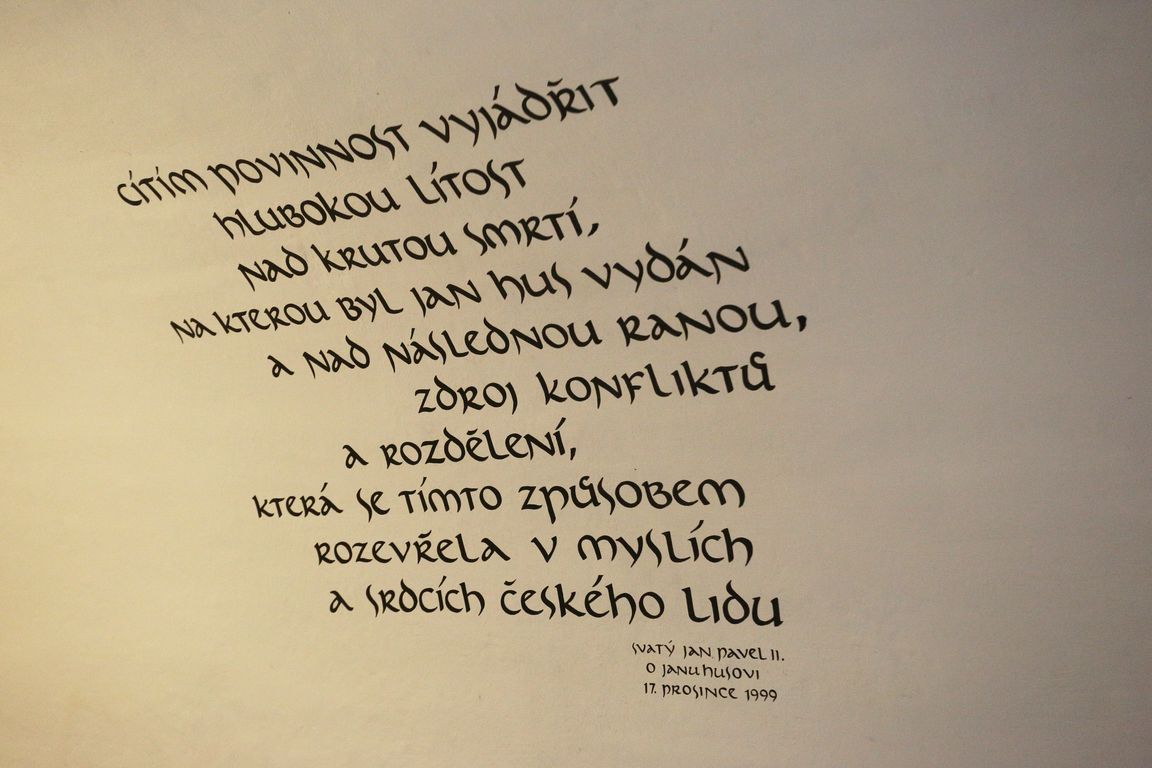 cítím povinnost vyjádřit
hlubokou lítost
nad krutou smrtí,
na kterou byl jan hus vydán
a nad následnou ranou,
zdroj konfliktů
a rozdělení,
která se tímto způsobem
rozevřela v myslích
a srdcích českého lidu
svatý jan pavel II.
o janu husovi
17. prosince 1999